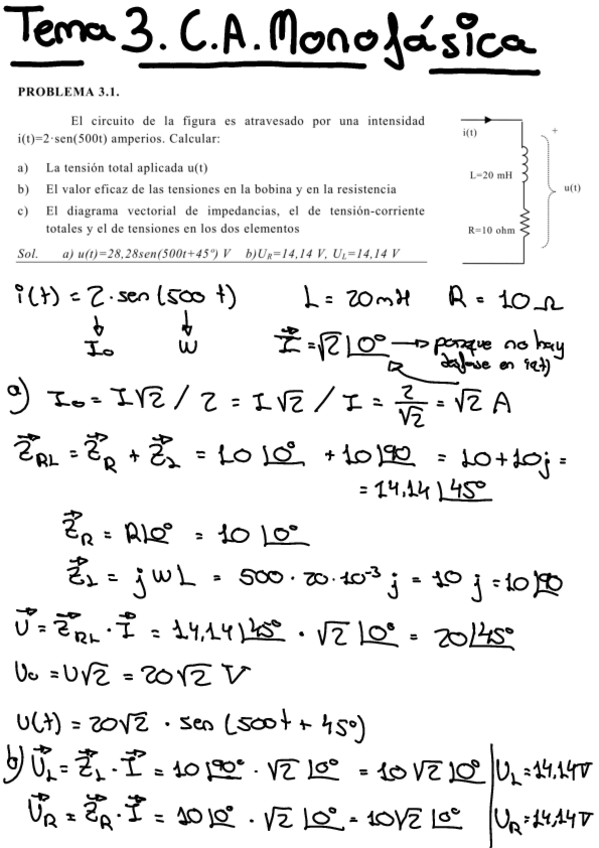 Tema 3. C.A. Monofásica
PROBLEMA 3.1.
El circuito de la figura es atravesado por una intensidad
i(t)=2·sen(500t) amperios. Calcular:
a) La tensión total aplicada u(t)
b) El valor eficaz de las tensiones en la bobina y en la resistencia
c) El diagrama vectorial de impedancias, el de tensión-corriente
totales y el de tensiones en los dos elementos
Sol. a) u(t)=28,28sen(500t+45º) V b)UR=14,14 V, UL=14,14 V
i(t)
+
L=20 mH
u(t)
R=10 ohm
i(t) = 2·sen(500 t) L = 20mH R = 10 Ω
I₀ W I⃗ = √2 ∠0° → porque no hay
desfase en i(t)
a) I₀ = I√2 / 2 = I√2 / I = 2/√2 = √2 A
Z⃗RL = Z⃗R + Z⃗L = 10 ∠0° + 10∠90 = 10+10j =
= 14,14 ∠45°
Z⃗R = R∠0° = 10 ∠0°
Z⃗L = j W L = 500 · 20·10⁻³ j = 10 j = 10∠90
U⃗ = Z⃗RL · I⃗ = 14,14∠45° · √2 ∠0° = 20∠45°
U₀ = U√2 = 20√2 V
U(t) = 20√2 · sen (500t + 45°)
b) U⃗L = Z⃗L · I⃗ = 10 ∠90° · √2 ∠0° = 10√2 ∠0° | UL = 14,14V
U⃗R = Z⃗R · I⃗ = 10 ∠0° · √2 ∠0° = 10√2 ∠0° | UR = 14,14V